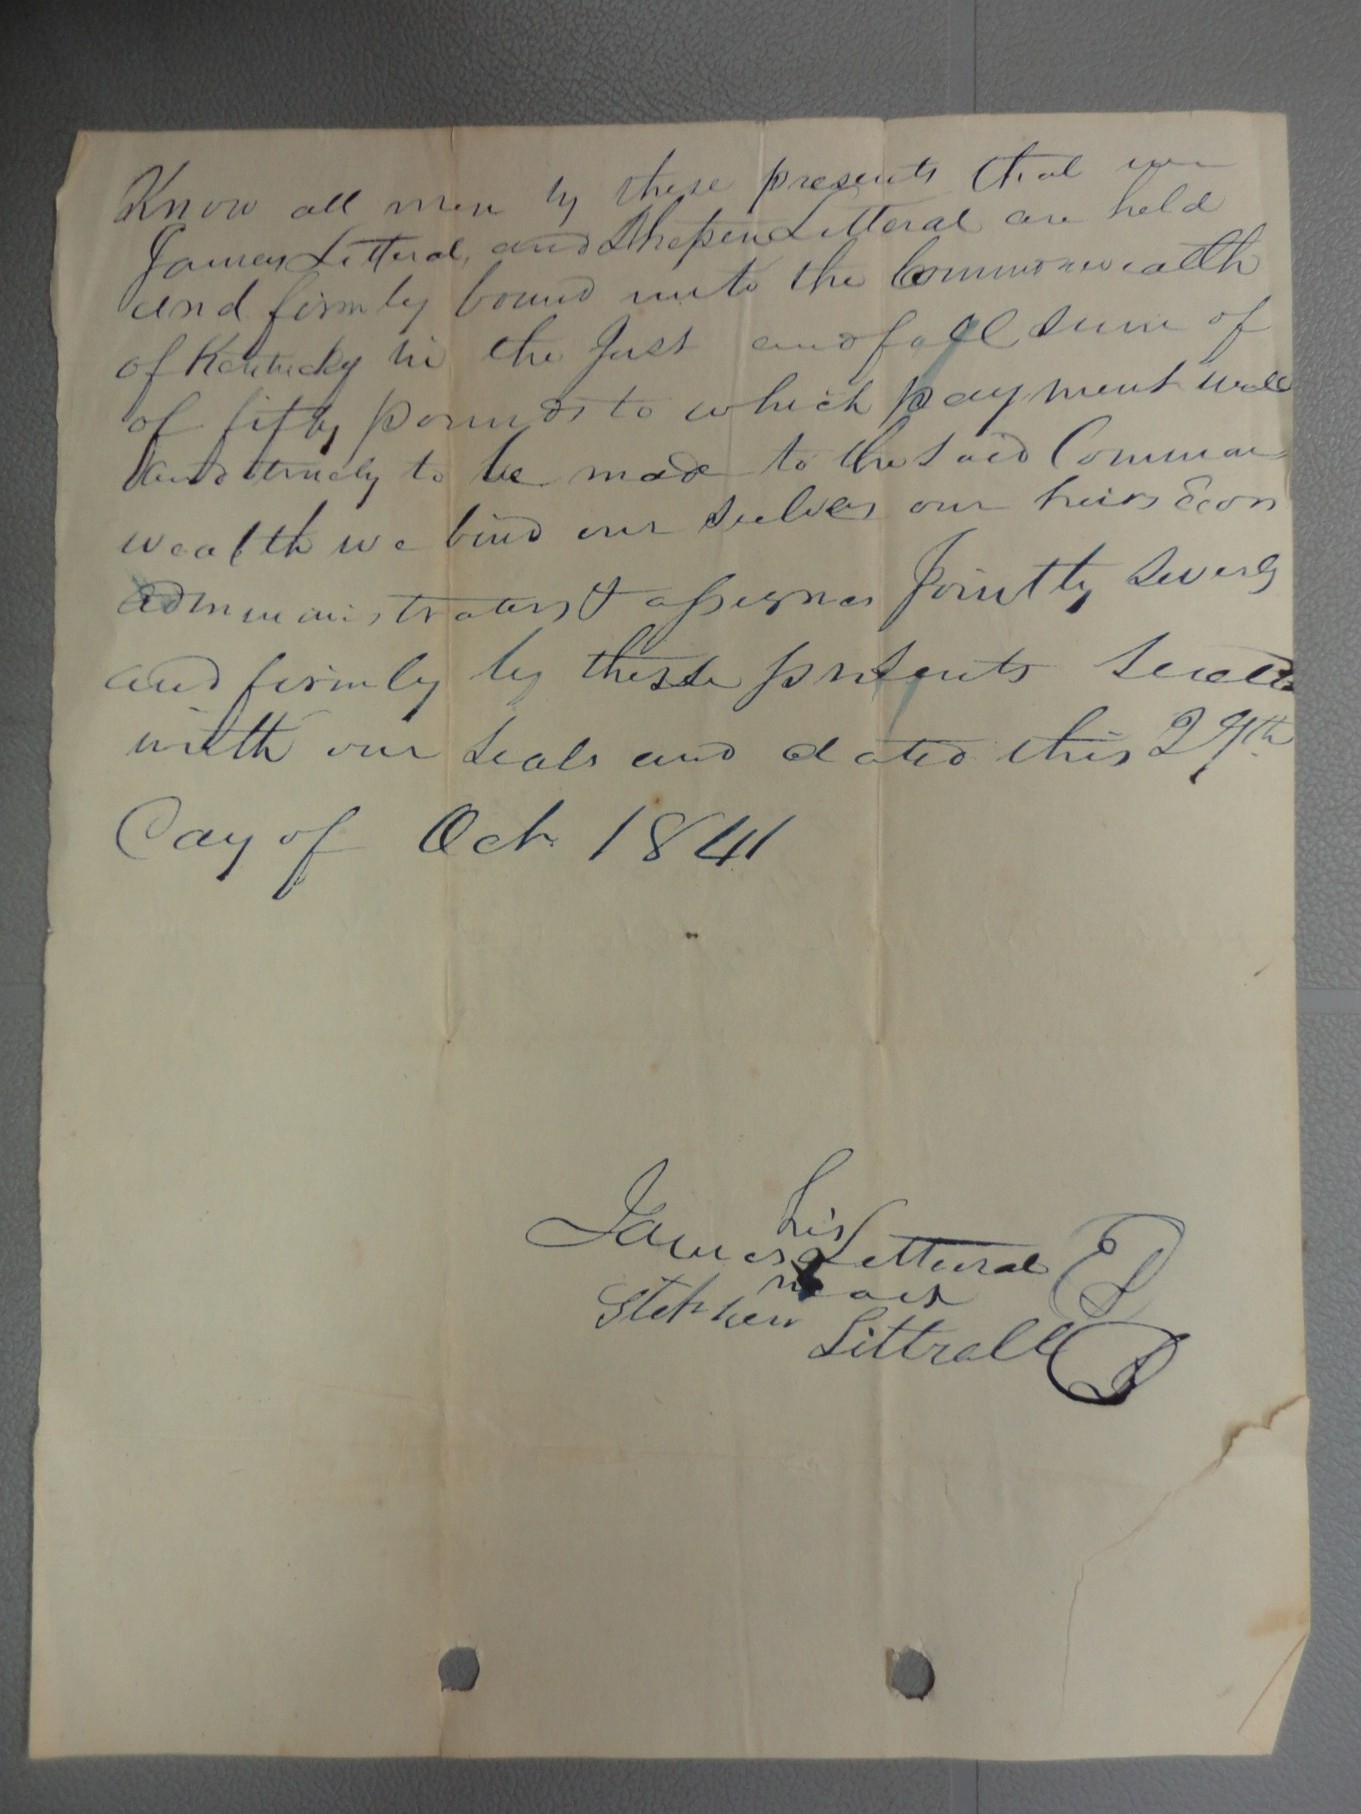 Know all men by these presents that we
James Litteral, and Sthepen Litteral are held
and firmly bound unto the Commonwealth
of Kentucky in the Just and full sum of
of fifty pounds to which payment well
and truely to be made to the said Common
wealth we bind our selves our heirs Econs
administrators & assignes Jointly severly
and firmly by these presents Seald
with our seals and dated this 27th
Day of Oct 1841
his
James Litteral
mark
Stephen Littrall